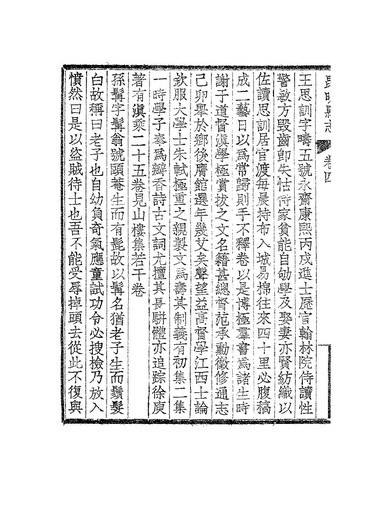 昆明縣志 卷四
王思訓字疇五號永齋康熙丙戌進士歷官翰林院侍讀性
警敏方毀齒卽失怙恃家貧能自劬學及娶妻亦賢紡織以
佐讀思訓居官渡每晨持布入城易棉往來四十里必腹稿
成二藝日以爲常歸則手不釋卷以是博極羣書爲諸生時
謝于道督滇學極賞拔之文名籍甚總督范承勳徵修通志
己卯舉於鄉後膺館選年幾艾矣聲望益高督學江西士論
欽服大學士朱軾極重之親製文爲壽其制義有初集二集
一時學子奉爲瓣香詩古文詞尤擅其長駢體亦追踪徐庾
著有滇乘二十五卷見山樓集若干卷
孫髯字髯翁號頤菴生而有髭故以髯名猶老子生而鬚髮
白故稱曰老子也自幼負奇氣應童試功令必搜檢乃放入
憤然曰是以盜賊待士也吾不能受辱掉頭去從此不復與